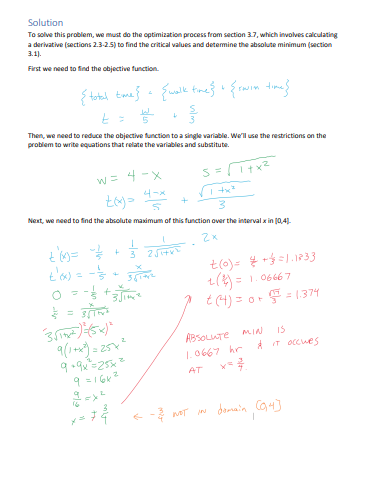 Solution
To solve this problem, we must do the optimization process from section 3.7, which involves calculating
a derivative (sections 2.3-2.5) to find the critical values and determine the absolute minimum (section
3.1).
First we need to find the objective function.
{total time} = {walk time} + {swim time}
t = w/5 + s/3
Then, we need to reduce the objective function to a single variable. We'll use the restrictions on the
problem to write equations that relate the variables and substitute.
w = 4 - x    s = √(1 + x²)
t(x) = (4 - x)/5 + √(1 + x²)/3
Next, we need to find the absolute maximum of this function over the interval x in [0,4].
t'(x) = -1/5 + 1/3 · 1/(2√(1+x²)) · 2x
t'(x) = -1/5 + x/(3√(1+x²))
0 = -1/5 + x/(3√(1+x²))
1/5 = x/(3√(1+x²))
(3√(1+x²))² = (5x)²
9(1+x²) = 25x²
9 + 9x² = 25x²
9 = 16x²
9/16 = x²
x = ± 3/4
← -3/4 NOT IN domain [0,4]
t(0) = 4/5 + 1/3 = 1.1333
t(3/4) = 1.06667
t(4) = 0 + √17/3 = 1.374
ABSOLUTE MIN IS
1.0667 hr & IT OCCURS
AT x = 3/4